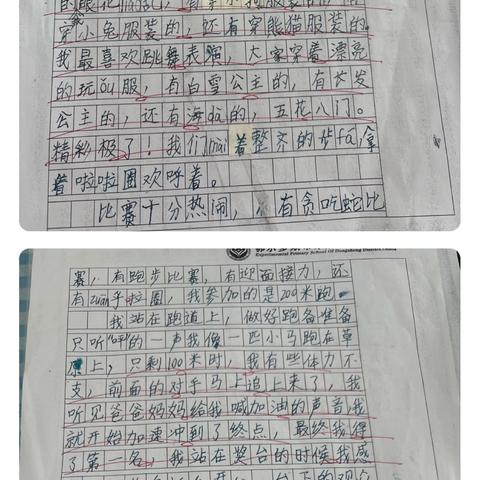 穿小兔服装的,还有穿熊猫服装的。
我最喜欢跳舞表演,大家穿着漂亮
的玩ǒu服,有白雪公主的,有长发
公主的,还有海dà的,五花八门。
精彩极了!我们mài着整齐的步fá,拿
着啦啦圈欢呼着。
比赛十分热闹,有贪吃蛇比
Experimental Primary School Of Dongsheng District Ordos
赛,有跑步比赛,有迎面接力,还
有zuàn手拉圈,我参加的是200米跑。
我站在跑道上,做好跑备准备
只听"呯"的一声我像一匹小马跑在草
原上,只剩100米时,我有些体力不
支,前面的对手马上追上来了,我
听见爸爸妈妈给我喊加油的声音我
就开始加速冲到了终点,最终我得
了第一名,我站在奖台的时候我感